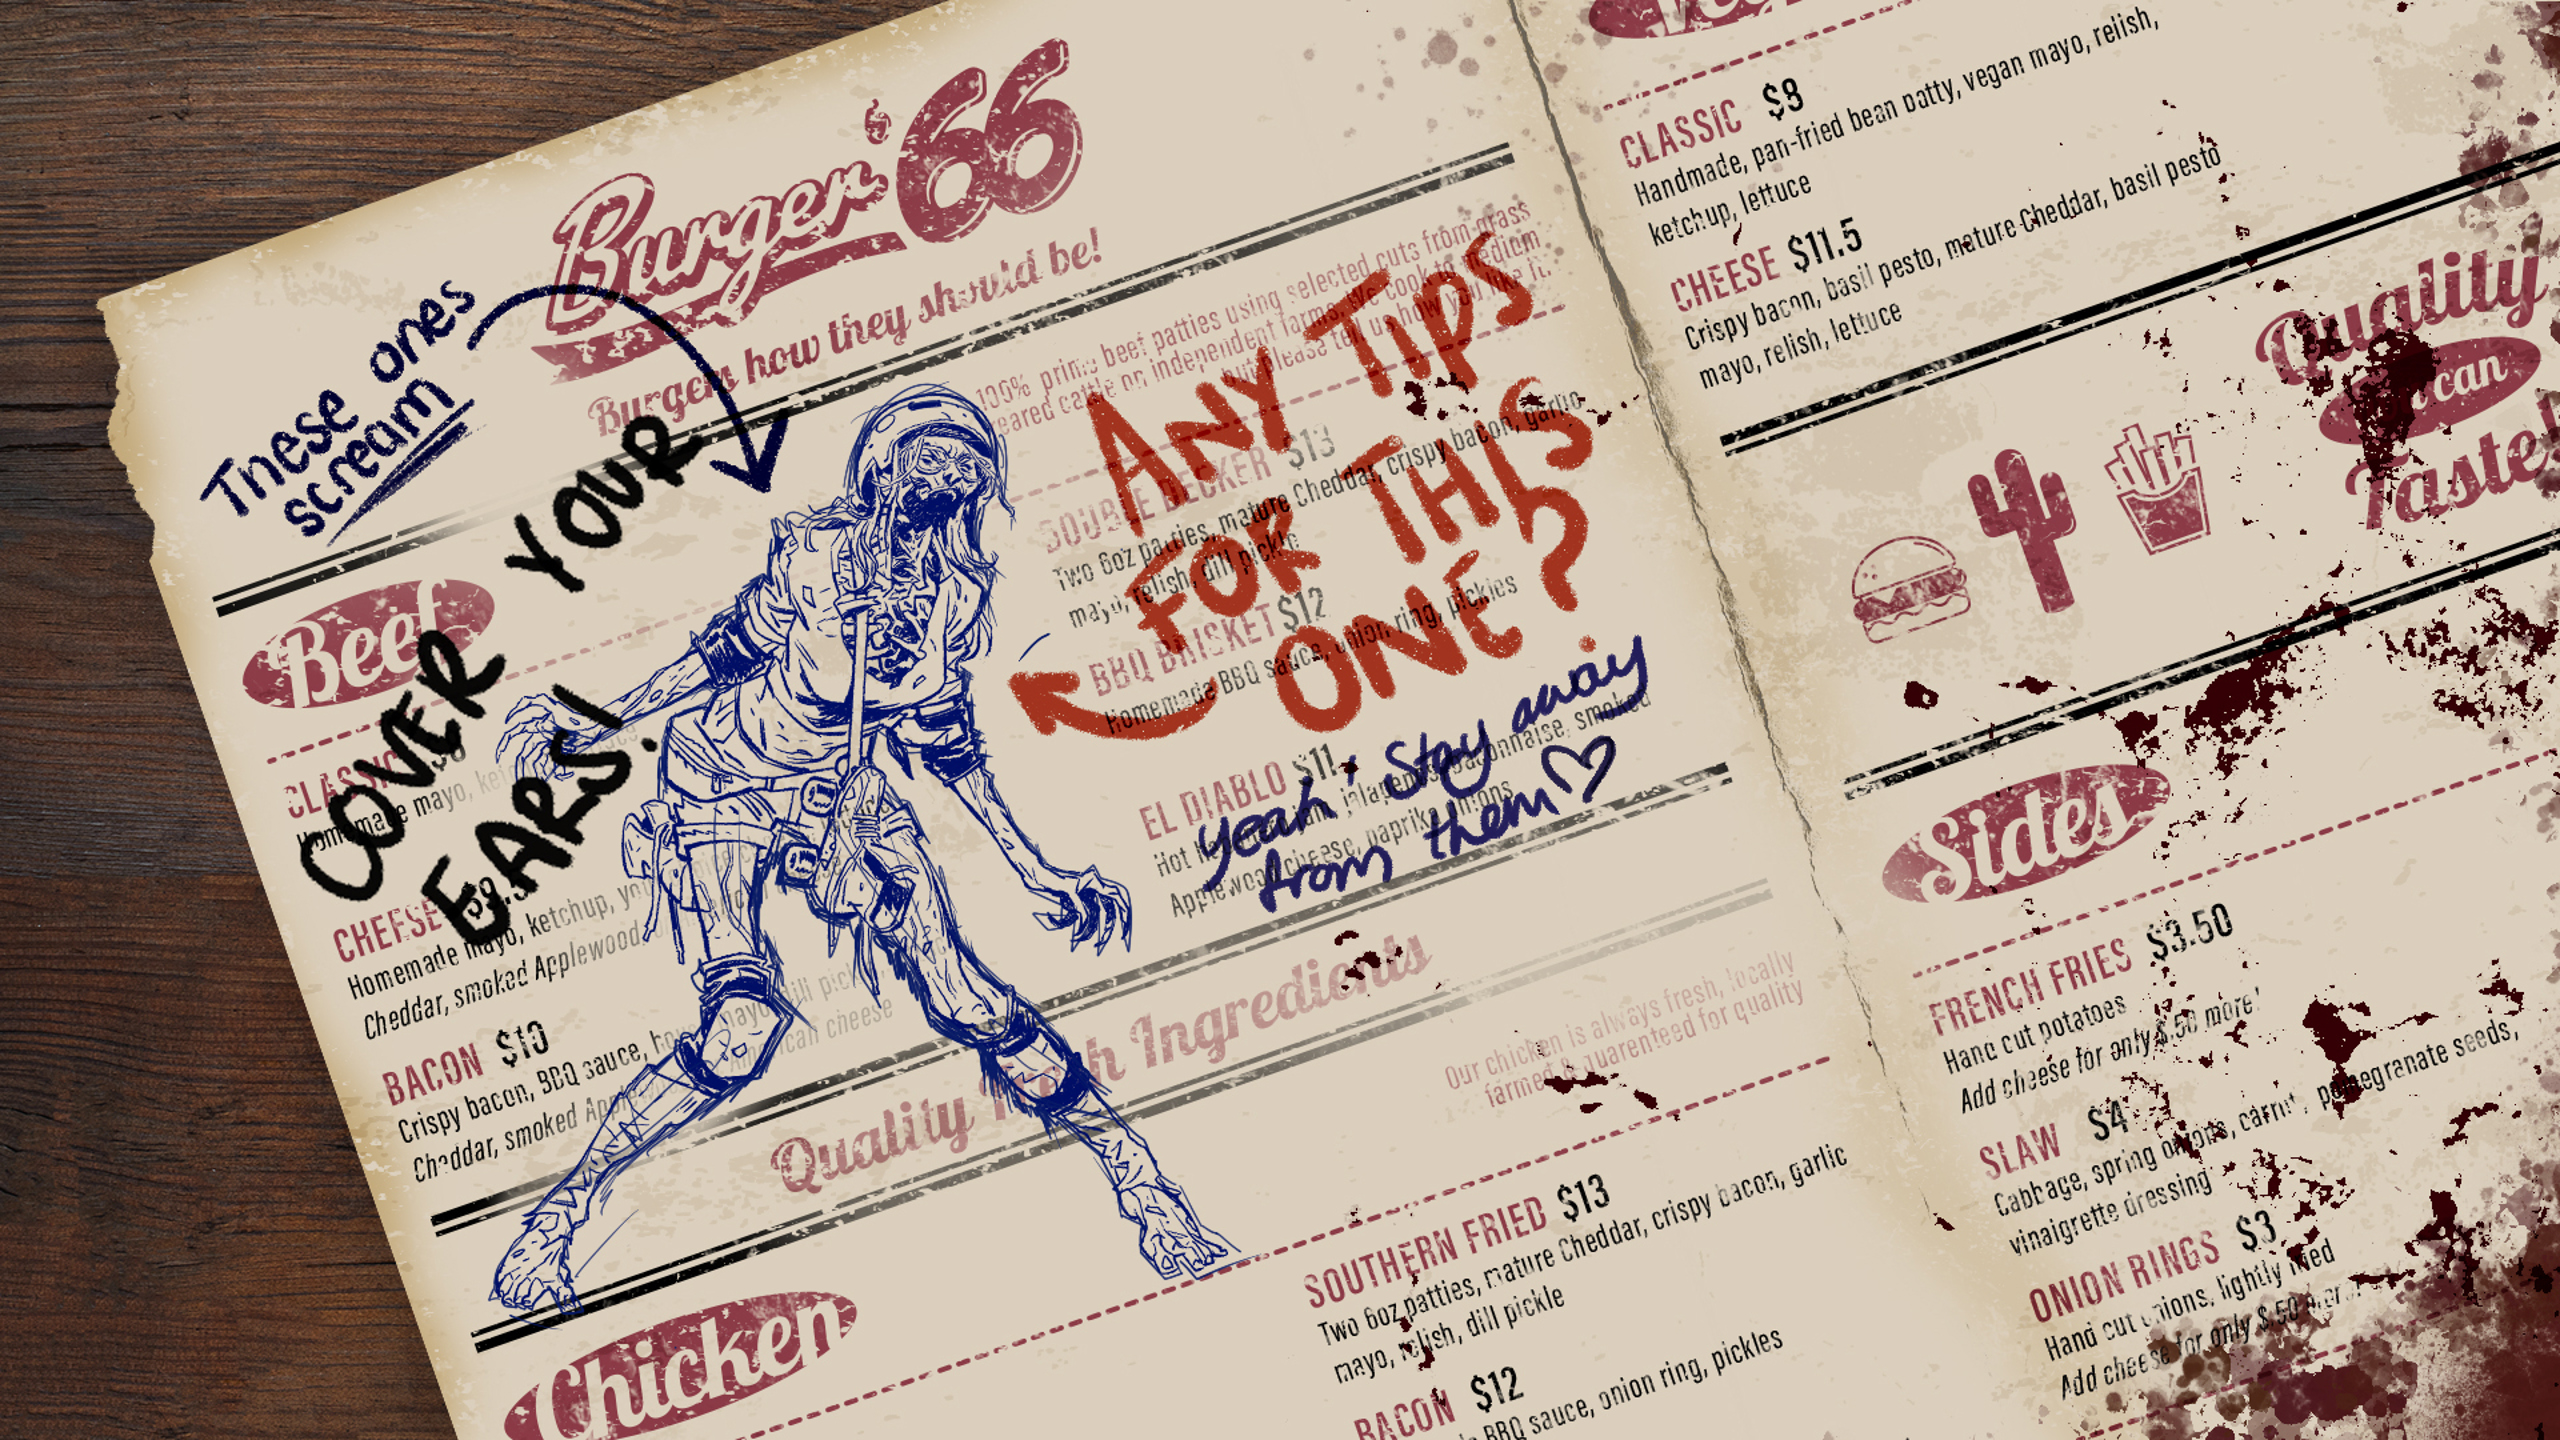 Burger '66
Burgers how they should be!
These ones
scream
COVER YOUR
EARS!
ANY TIPS
FOR THIS
ONE?
yeah, stay away
from them♡
100% prime beef patties using selected cuts from grass
reared cattle on independent farms. We cook to medium
but please tell us how you like it.
Beef
CLASSIC
Homemade mayo,
CHEESE
Homemade mayo, ketchup,
Cheddar, smoked Applewood,
BACON $10
Crispy bacon, BBQ sauce,
Cheddar, smoked
American cheese
DOUBLE DECKER $13
Two 6oz patties, mature Cheddar, crispy bacon, garlic
mayo, relish, dill pickle
BBQ BRISKET $12
Homemade BBQ sauce, onion ring, pickles
EL DIABLO $11
Hot jalapenos, smoked
Applewood cheese, paprika onions
Quality Fresh Ingredients
Our chicken is always fresh, locally
farmed & guarenteed for quality
Chicken
SOUTHERN FRIED $13
Two 6oz patties, mature Cheddar, crispy bacon, garlic
mayo, relish, dill pickle
BACON $12
BBQ sauce, onion ring, pickles
CLASSIC $8
Handmade, pan-fried bean patty, vegan mayo, relish,
ketchup, lettuce
CHEESE $11.5
Crispy bacon, basil pesto, mature Cheddar, basil pesto
mayo, relish, lettuce
Quality
can
Taste!
Sides
FRENCH FRIES $3.50
Hand cut potatoes
Add cheese for only $.50 more!
SLAW $4
Cabbage, spring onions, carrot, pomegranate seeds,
vinaigrette dressing
ONION RINGS $3
Hand cut onions, lightly fried
Add cheese for only $.50 more!